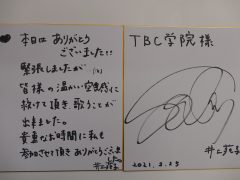 本日は ありがとう
ございました!!
緊張しましたが
皆様の温かい空気感に
救けて頂き 歌うことが
出来ました。
貴重なお時間に私も
参加させて頂き ありがとうござい
ました。
TBC学院 様
井上苑子
2021.2.25